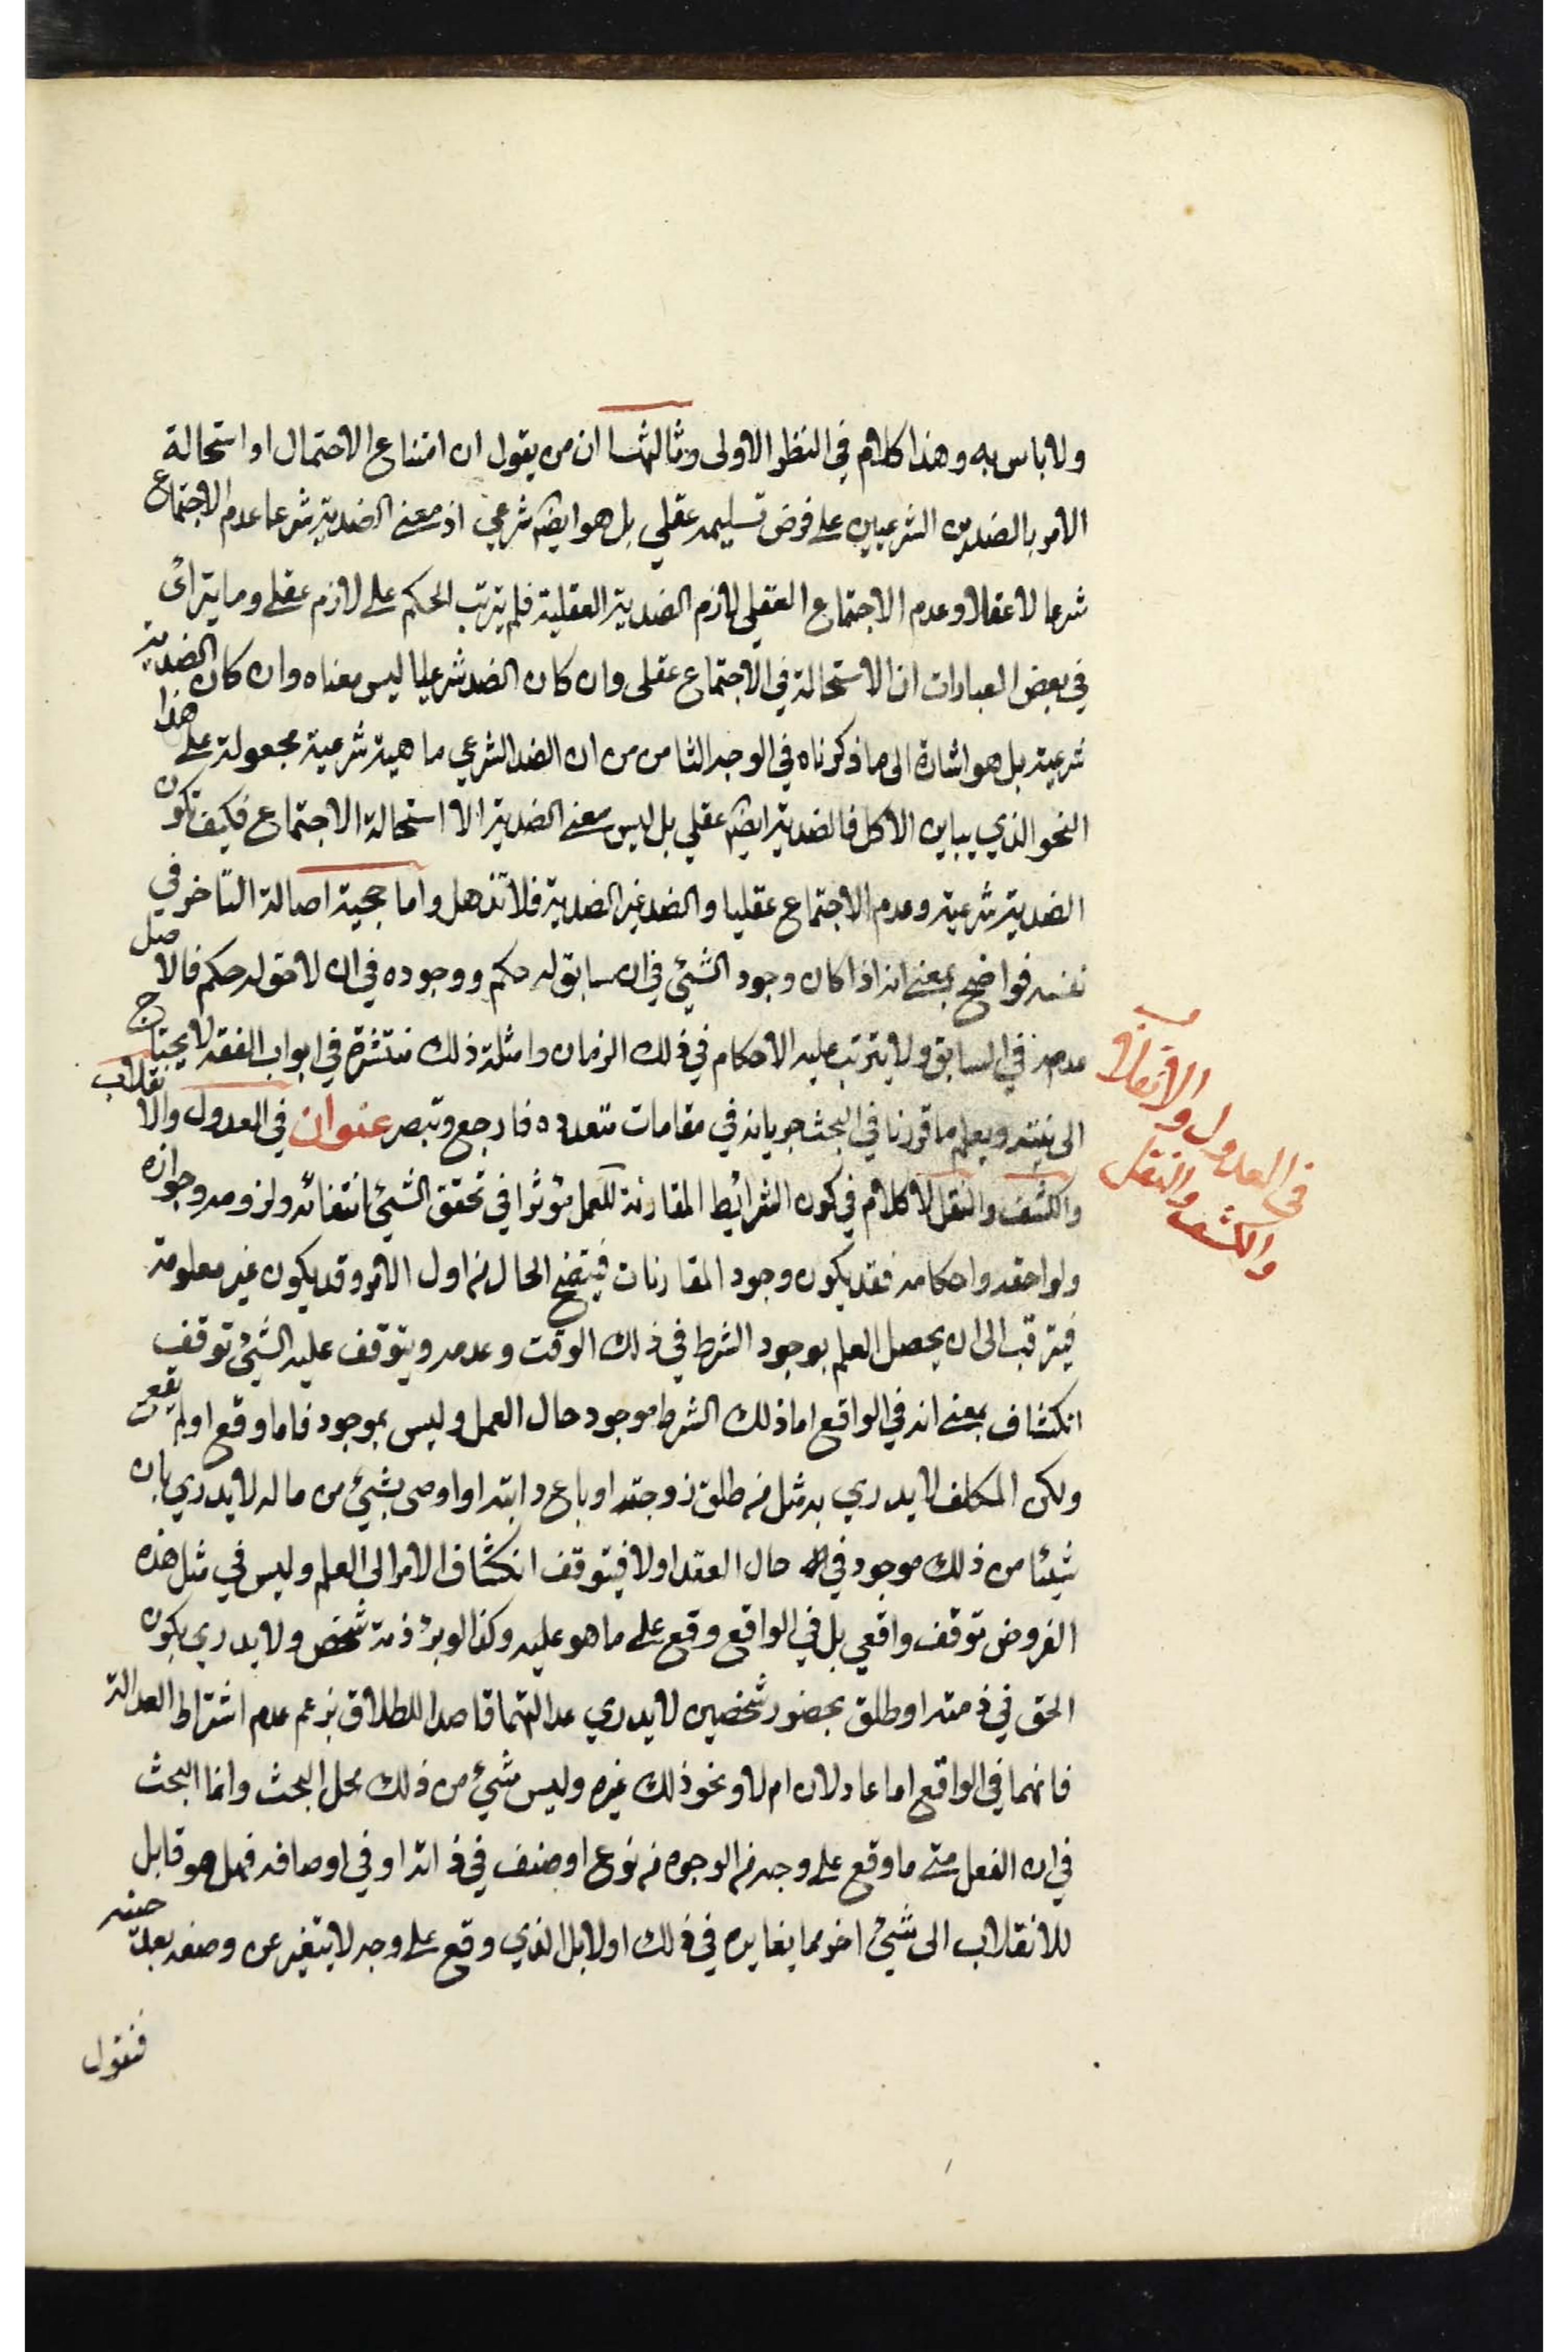 ولا باس به وهذا كلام في النظر الاولى وثالثها ان من يقول ان امتناع الاحتمال او استحالة
الامر بالضدين الشرعيين على فرض تسليمه عقلي بل هو ايضا شرعي اذ معنى الضدية شرعا عدم الاجتماع
شرعا لا عقلا وعدم الاجتماع العقلي لازم الضدية العقلية فلم يترتب الحكم على لازم عقلي وما يترائ
في بعض العبارات ان الاستحالة في الاجتماع عقلى وان كان الضد شرعيا ليس معناه وان كان الضدية
شرعية بل هو اشارة الى ما ذكرناه في الوجه الثامن من ان الضد الشرعي ماهية شرعية مجعولة على هذا
النحو الذي يباين الاكل فالضدية ايضا عقلي بل ليس معنى الضدية الا استحالة الاجتماع فكيف تكون
الضدية شرعية وعدم الاجتماع عقليا والضد غير الضدية فلا تذهل واما حجية اصالة التاخر في
نفسه فواضح بمعنى انه اذا كان وجود الشيئ في ان سابق له حكم ووجوده في ان لاحق له حكم فالاصل
عدمه في السابق ولا يترتب عليه الاحكام في ذلك الزمان وامثلة ذلك منتشرة في ابواب الفقه لا يحتاج
الى بينته ويعلم ما قررنا في البحث جريانه في مقامات متعدده فارجع وتبصر عنوان في العدول والانقلاب
والكشف والنقل لا كلام في كون الشرائط المقارنة للعمل مؤثرا في تحقق الشيئ انتفائه ولزومه وجوازه
ولواحقه واحكامه فقد يكون وجود المقارنات فيتضح الحال من اول الامر وقد يكون غير معلومة
فيترقب الى ان يحصل العلم بوجود الشرط في ذلك الوقت وعدمه ويتوقف عليه الشيئ توقف
انكشاف بمعنى انه في الواقع اما ذلك الشرط موجود حال العمل وليس بموجود فاما وقع او لم يقع
ولكن المكلف لا يدري به مثل من طلق زوجته او باع دابته او اوصى بشيئ من ماله لا يدري بان
شيئا من ذلك موجود في حال العقد اولا فيتوقف انكشاف الامر الى العلم وليس في مثل هذه
الفروض توقف واقعي بل في الواقع وقع على ما هو عليه وكذا لو برئ ذمة شخص ولا يدري بكون
الحق في ذمته او طلق بحضور شخصين لا يدري عدالتهما قاصدا للطلاق بزعم عدم اشتراط العدالة
فانهما في الواقع اما عادلان ام لا ونحو ذلك غيره وليس شيئ من ذلك محل البحث وانما البحث
في ان الفعل متى ما وقع على وجه من الوجوه من نوع او صنف في ذاته او في اوصافه فهل هو قابل
للانقلاب الى شيئ اخر مما يغايره في ذلك اولا بل الذي وقع على وجه لا يتغير عن وصفه بعد
فنقول
في العدول والانقلاب
والكشف والنقل